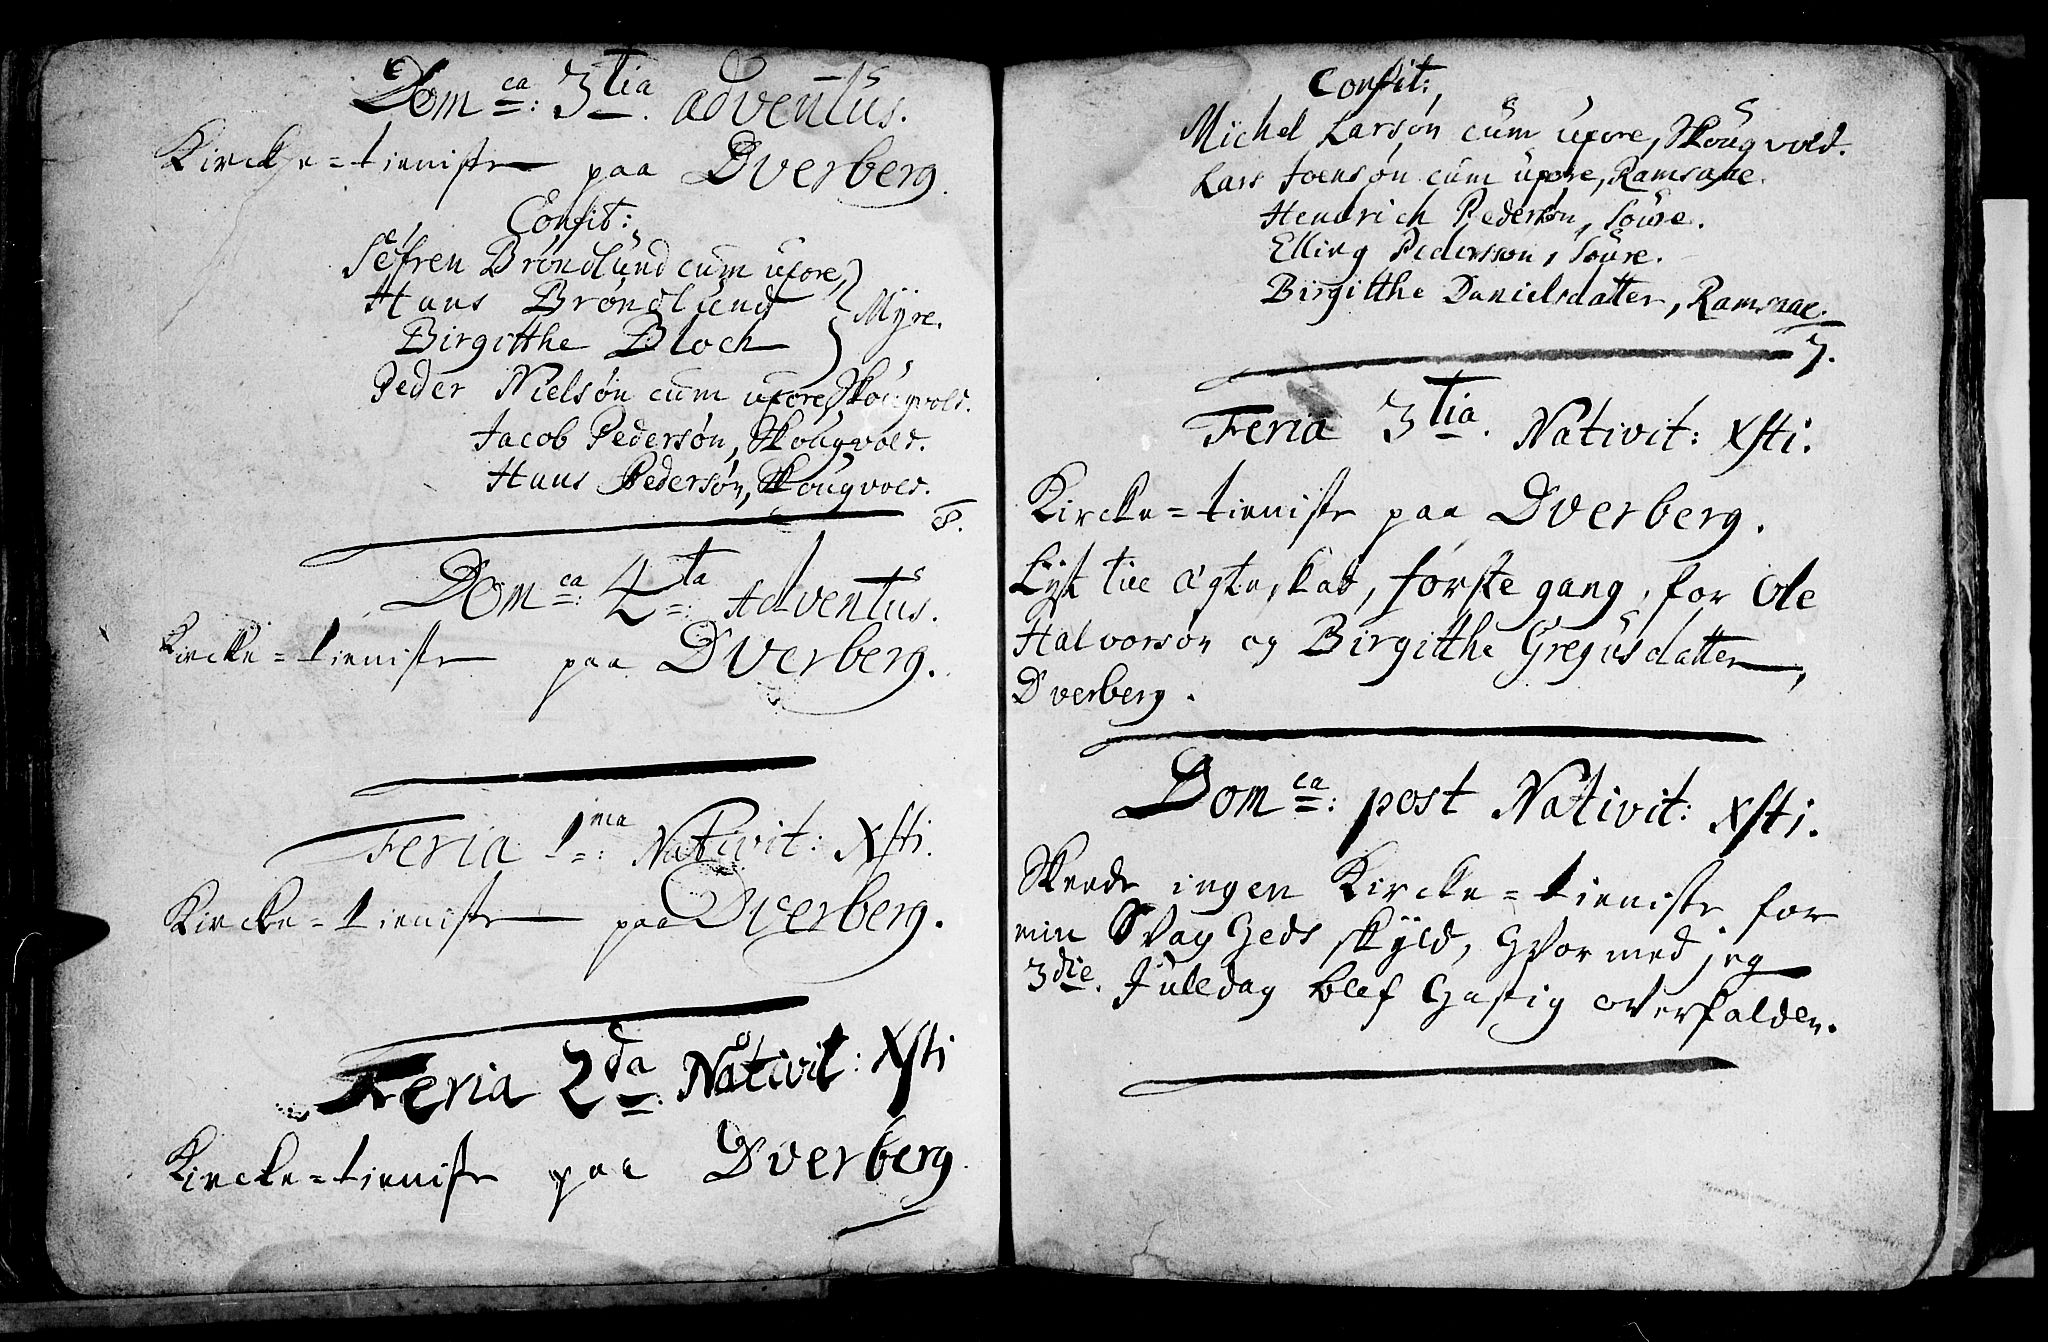 Dom ca: 3tia. adventûs.
Kircke=tieniste paa Dverberg.
Confit:
Sefren Bröndlund cum uxore,
Hans Bröndlund } Myre.
Birgitthe Bloch
Peder Nielsøn cum uxore, Skougvold.
Jacob Pedersøn, Skougvold.
Hans Pedersøn, Skougvold.
8.
Dom ca: 4ta: Adventûs.
Kircke=tieniste paa Dverberg.
Feria 1ma: Nativit: Xsti.
Kircke=tieniste paa Dverberg.
Feria 2da: Nativit: Xsti
Kircke=tieniste paa Dverberg.
Confit:
Michel Larsøn cum uxore, Skougvold.
Lars Joensøn cum uxore, Ramsaae.
Hendrich Pedersøn, Soure.
Elling Pedersøn, Soure.
Birgitthe Danielsdatter, Ramsaae.
7.
Feria 3tia. Nativit: Xsti.
Kircke=tieniste paa Dverberg.
Lyst til ægteskab, første gang, for Ole
Halvorsøn og Birgitthe Gregusdatter,
Dverberg.
Dom ca: post Nativit: Xsti.
Skeede ingen Kircke=tieniste for
min Svagheds skyld, hvormed jeg
3die. Juledag blef hastig overfalden.